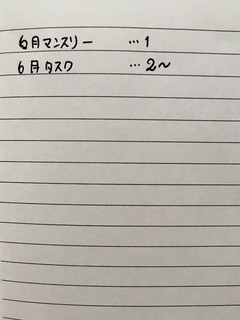 6月マンスリー …1
6月タスク …2〜